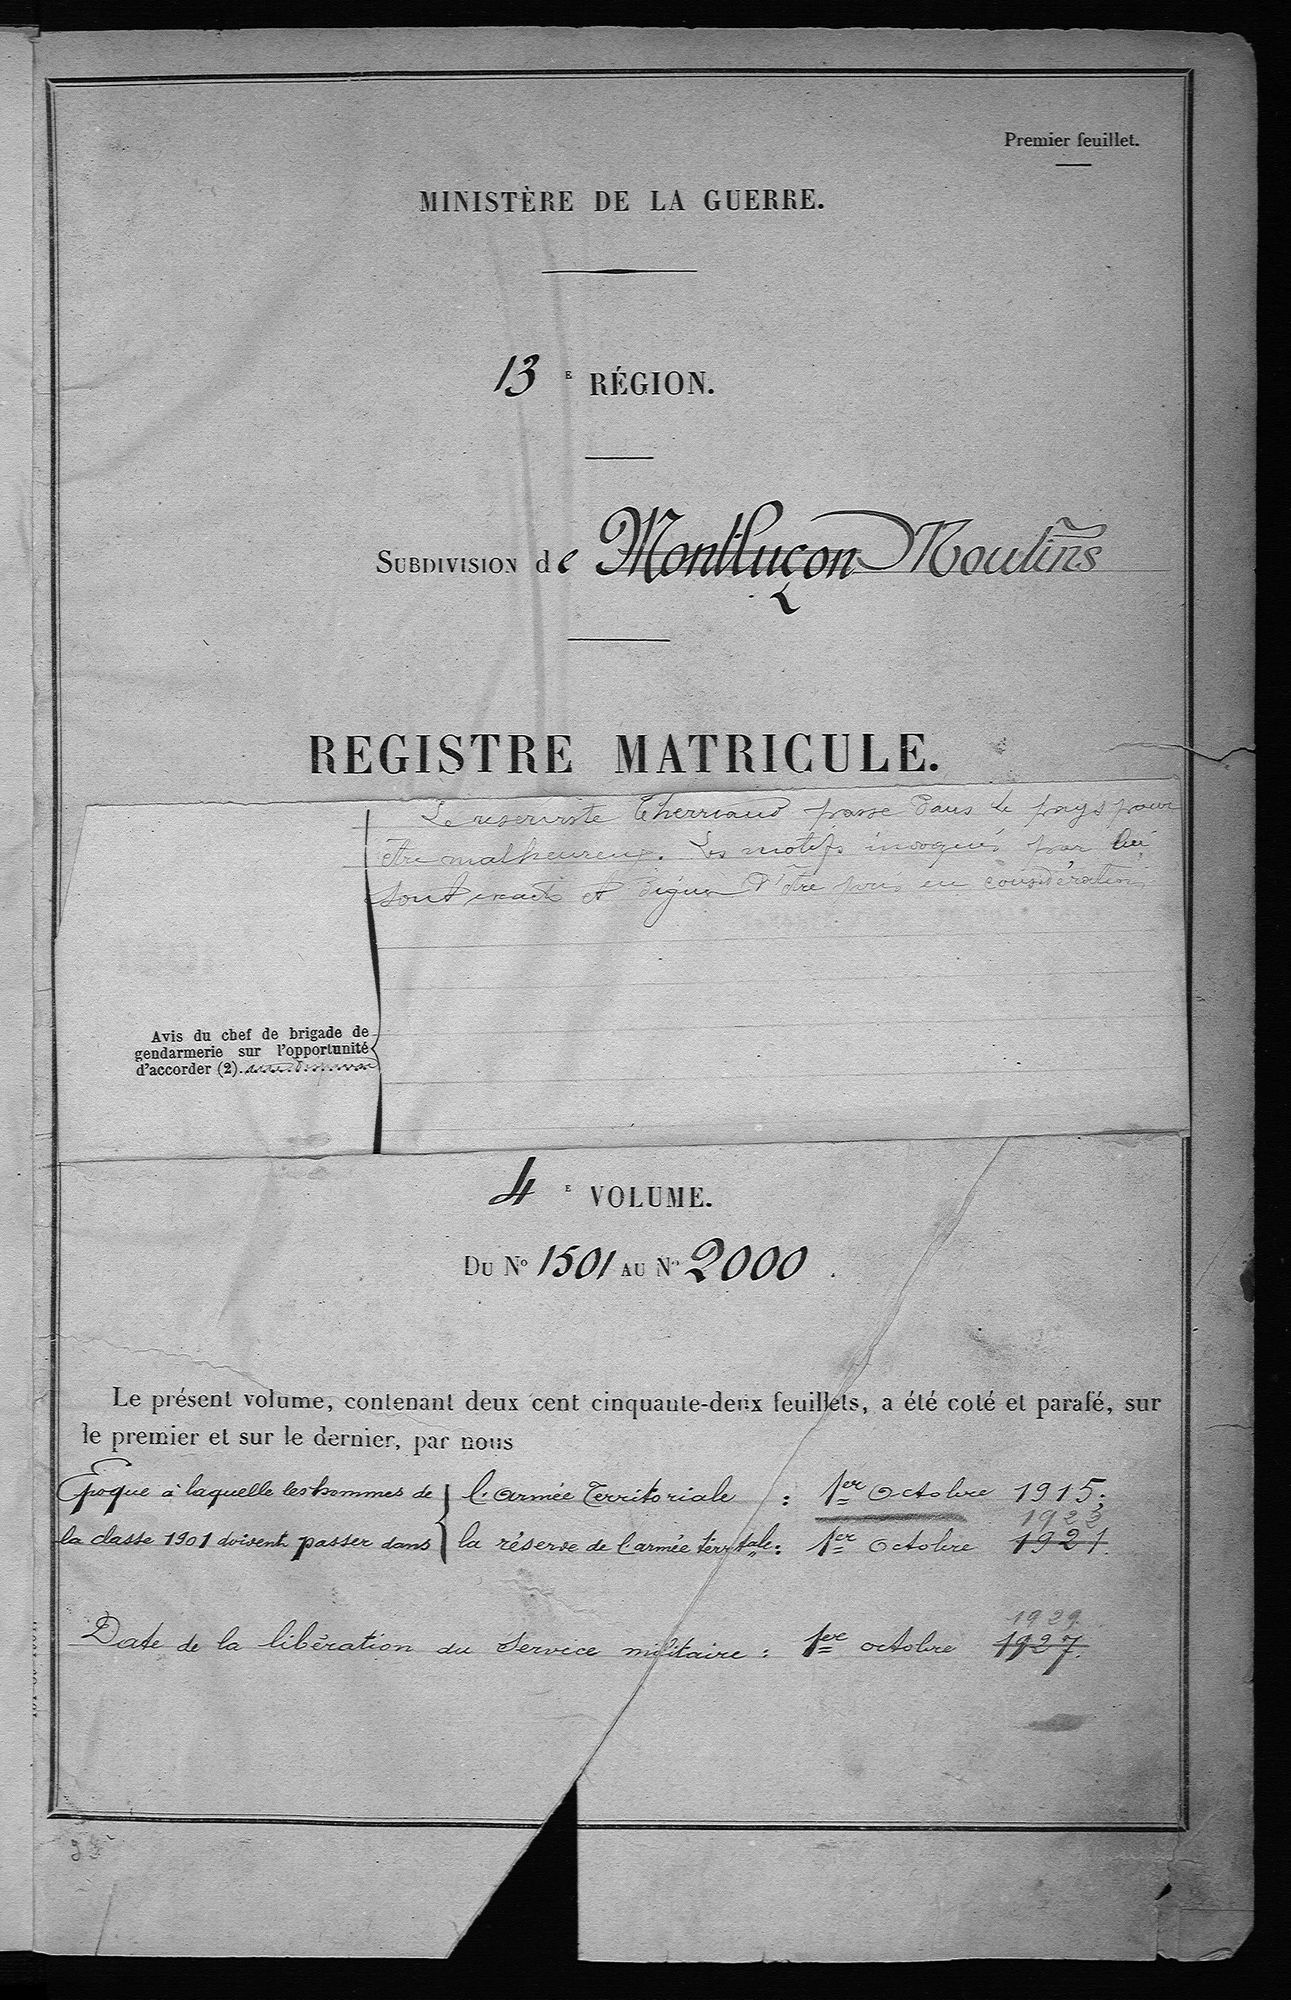 Premier feuillet.
MINISTÈRE DE LA GUERRE.
13 E RÉGION.
SUBDIVISION de Montluçon Moulins
REGISTRE MATRICULE.
Le réserviste Therriaud passe dans le pays pour
être malheureux. Les motifs invoqués par lui
sont exacts et dignes d'être pris en considération
Avis du chef de brigade de
gendarmerie sur l'opportunité
d'accorder (2)
4 E VOLUME.
DU N° 1501 AU N° 2000.
Le présent volume, contenant deux cent cinquante-deux feuillets, a été coté et parafé, sur
le premier et sur le dernier, par nous
Epoque à laquelle les hommes de { l'armée Territoriale : 1er Octobre 1915;
1923
la classe 1901 doivent passer dans la réserve de l'armée terrtale : 1er Octobre 1921.
1929.
Date de la libération du Service militaire : 1er octobre 1927.